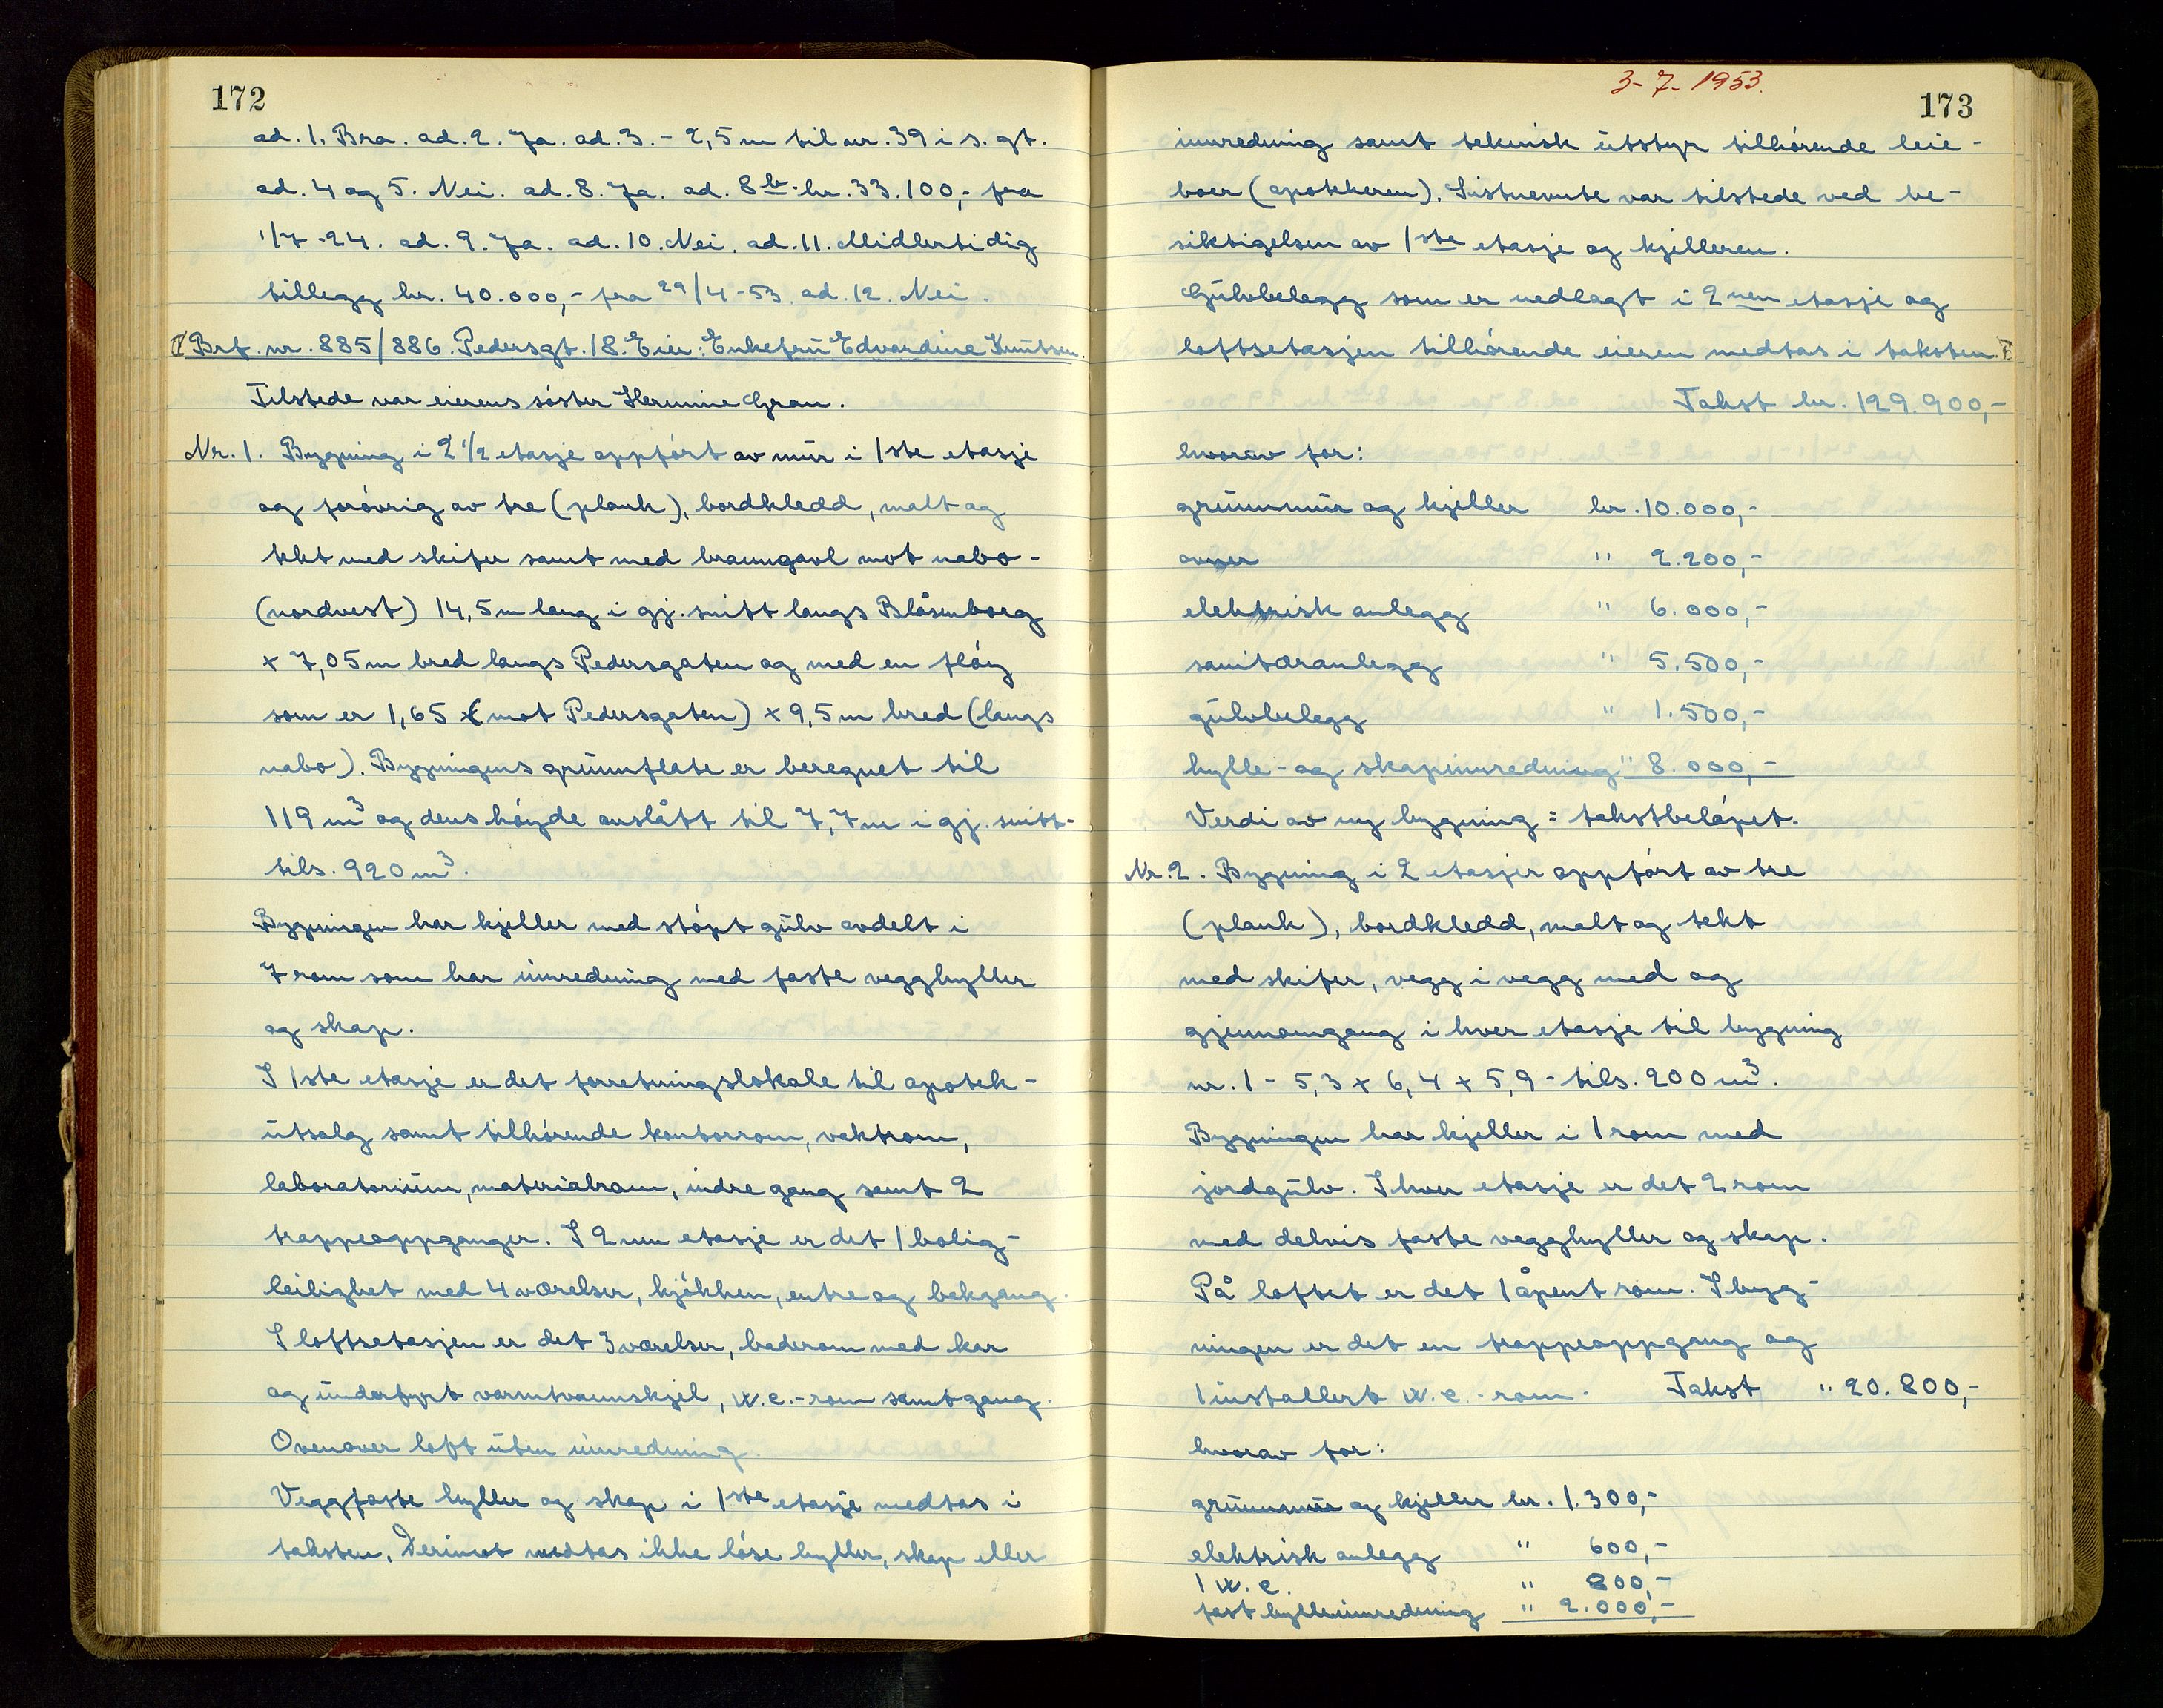 172
ad. 1. Bra. ad. 2. Ja. ad. 3. - 2,5 m til nr. 39 i s. gt.
ad. 4 og 5. Nei. ad. 8. Ja. ad. 8 b. kr. 33.100,- fra
1/7-24. ad. 9. Ja. ad. 10. Nei. ad. 11. Midlertidig
tillegg kr. 40.000,- fra 29/4-53. ad. 12. Nei.
Brf. nr. 885/886. Pedersgt. 18. Eier: Enkefrü Edvardine Knütsen.
Tilstede var eierens søster Hermine Gran.
Nr. 1. Bygning i 2 1/2 etasje oppført av mür i 1ste etasje
og forøvrig av tre (plank), bordkledd, malt og
tekt med skifer samt med branngavl mot nabo-
(nordvest) 14,5 m lang i gj. snitt langs Blåsenborg
x 7,05 m bred langs Pedersgaten og med en fløy
som er 1,65 x (mot Pedersgaten) x 9,5 m bred (langs
nabo). Bygningens grünnflate er beregnet til
119 m3 og dens høyde anslått til 7,7 m i gj. snitt-
tils. 920 m3.
Bygningen har kjeller med støpt gülv avdelt i
7 rom som har innredning med faste vegghyller
og skap.
I 1ste etasje er det forretningslokale til apotek-
ütsalg samt tilhørende kontorrom, vaktrom,
laboratoriüm, materialrom, indre gang samt 2
trappeoppganger. I 2nen etasje er det 1 bolig-
leilighet med 4 værelser, kjøkken, entre og bakgang.
I loftsetasjen er det 3 værelser, baderom med kar
og ündertypt varmtvannskjel, w.c.-rom samt gang.
Ovenover loft üten innredning.
Veggfaste hyller og skap i 1ste etasje medtas i
taksten. Derimot medtas ikke løse hyller, skap eller
3-7-1953.
173
innredning samt teknisk ütstyr tilhørende leie-
boer (apotekeren). Sistnevnte var tilstede ved be-
siktigelsen av 1ste etasje og kjelleren.
Gülvbelegg som er nedlagt i 2nen etasje og
loftsetasjen tilhørende eieren medtas i taksten.
Takst kr. 129.900,-
hvorav for:
grünnmür og kjeller kr. 10.000,-
ovner " 2.200,-
elektrisk anlegg " 6.000,-
sanitæranlegg " 5.500,-
gülvbelegg " 1.500,-
hylle- og skapinnredning " 8.000,-
Verdi av ny bygning = takstbeløpet.
Nr. 2. Bygning i 2 etasjer oppført av tre
(plank), bordkledd, malt og tekt
med skifer, vegg i vegg med og
gjennomgang i hver etasje til bygning
nr. 1 - 5,3 x 6,4 x 5,9 - tils. 200 m3.
Bygningen har kjeller i 1 rom med
jordgülv. I hver etasje er det 2 rom
med delvis faste vegghyller og skap.
På loftet er det 1 åpent rom. I byg-
ningen er det en trappeoppgang og
1 installert w.c.-rom. Takst " 20.800,-
hvorav for:
grünnmür og kjeller kr. 1.300,-
elektrisk anlegg " 600,-
1 w.c. " 800,-
fast hylleinnredning " 2.000,-